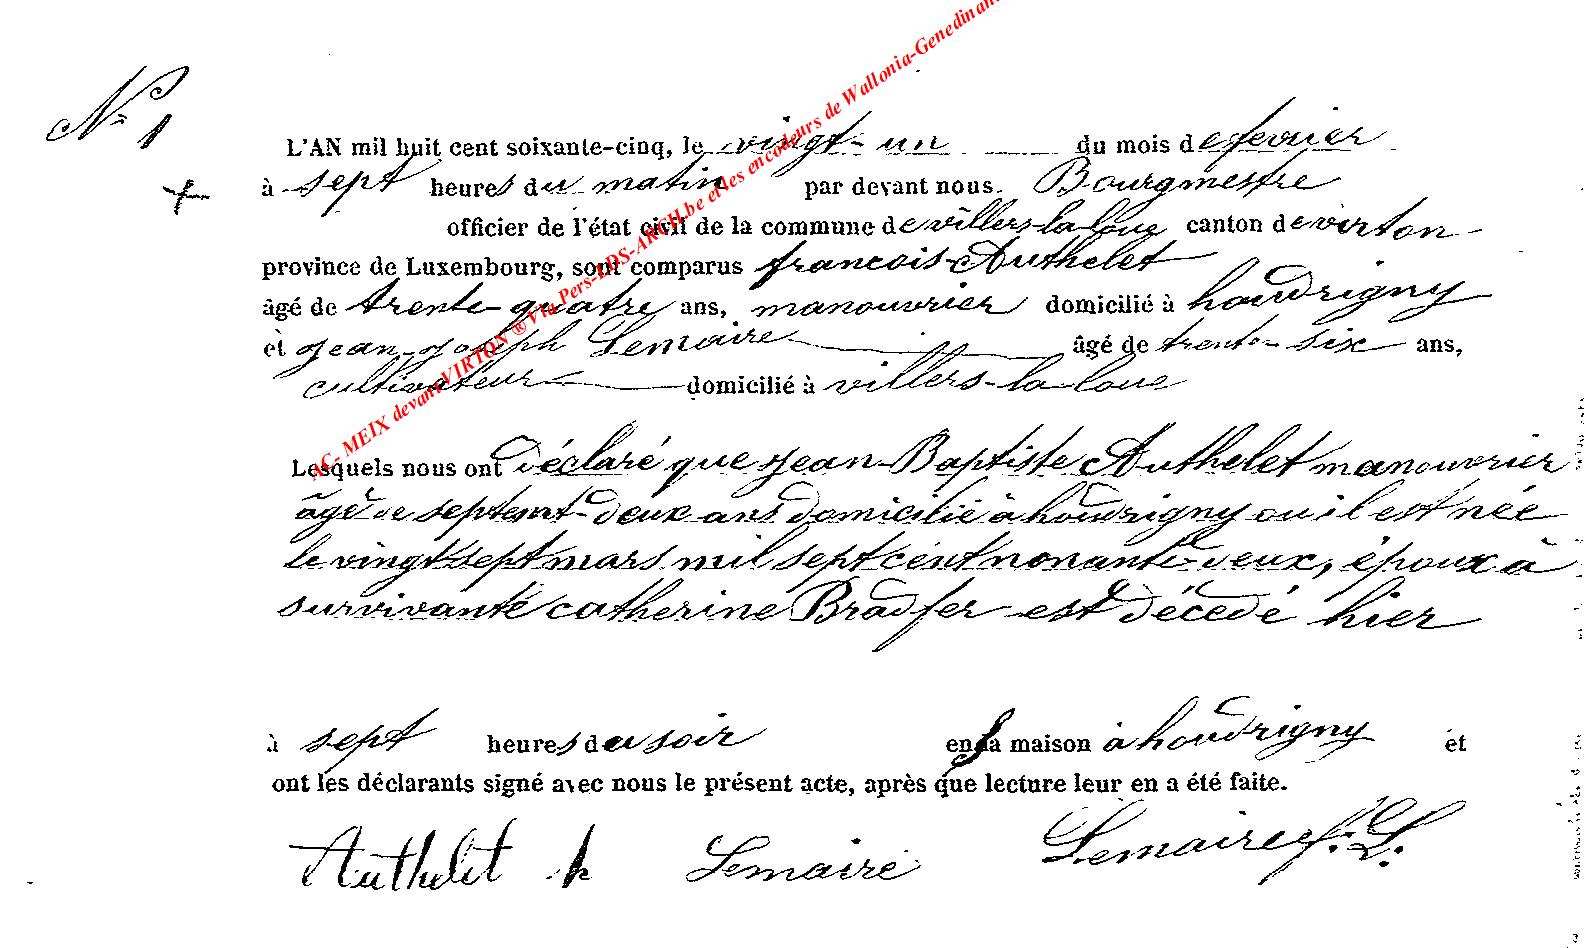 N° 1
L'AN mil huit cent soixante-cinq, le vingt-un du mois de fevrier
à sept heures du matin par devant nous. Bourgmestre
officier de l'état civil de la commune de villers-la-loue canton de virton
province de Luxembourg, sont comparus francois Authelet
âgé de trente-quatre ans, manouvrier domicilié à houdrigny
et jean-joseph Lemaire âgé de trente-six ans,
cultivateur domicilié à villers-la-loue
Lesquels nous ont déclaré que jean-Baptiste Authelet manouvrier
âgé de septent-deux ans domicilié à houdrigny ou il est née
le vingt sept mars mil sept cent nonante-deux, époux à
survivante catherine Bradfer est décedé hier
à sept heures du soir en sa maison à houdrigny et
ont les déclarants signé avec nous le présent acte, après que lecture leur en a été faite.
Authelet Lemaire Lemaire f. L.
AC- MEIX devant VIRTON ® Via Pers-LDS-ARCH.be et les encodeurs de Wallonia-Genedinant